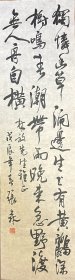 獨憐幽草澗邊生上有黃鸝深
樹鳴春潮帶雨晚來急野渡
無人舟自橫
先生雅正